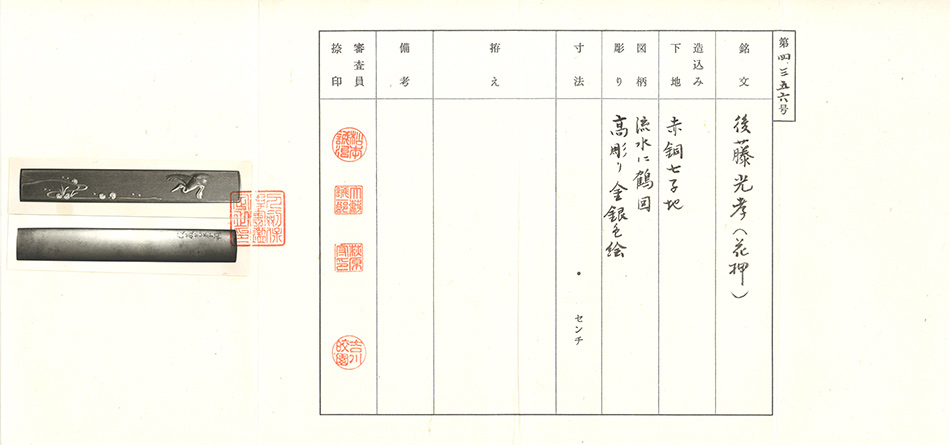 第四、三五六号
銘文
後藤光孝(花押)
造込み
下地
赤銅七子地
図柄
彫り
流水に鶴図
高彫り金銀色絵
寸法
・
センチ
拵え
備考
審査員
捺印